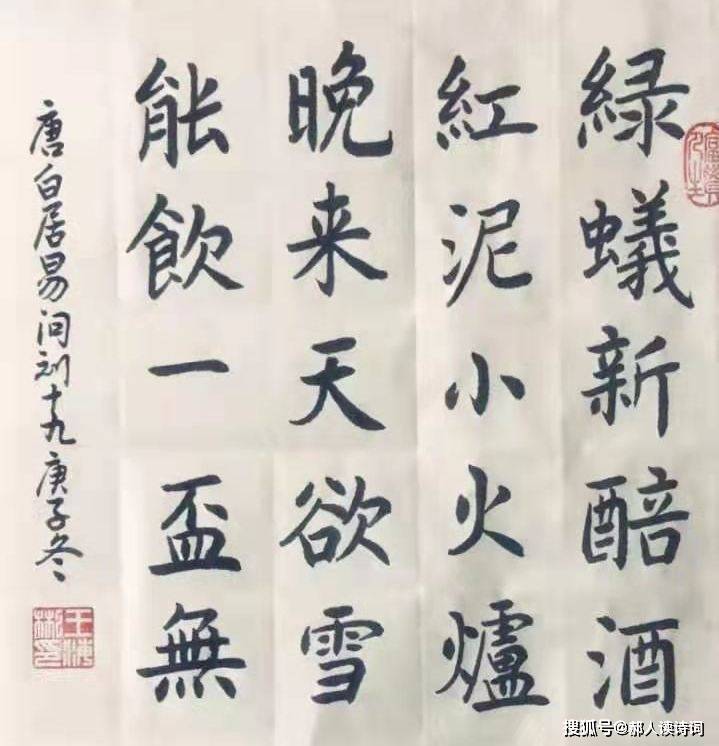 緑蟻新醅酒
紅泥小火爐
晚来天欲雪
能飲一盃無
唐白居易问刘十九庚子冬
搜狐号@郝人读诗词